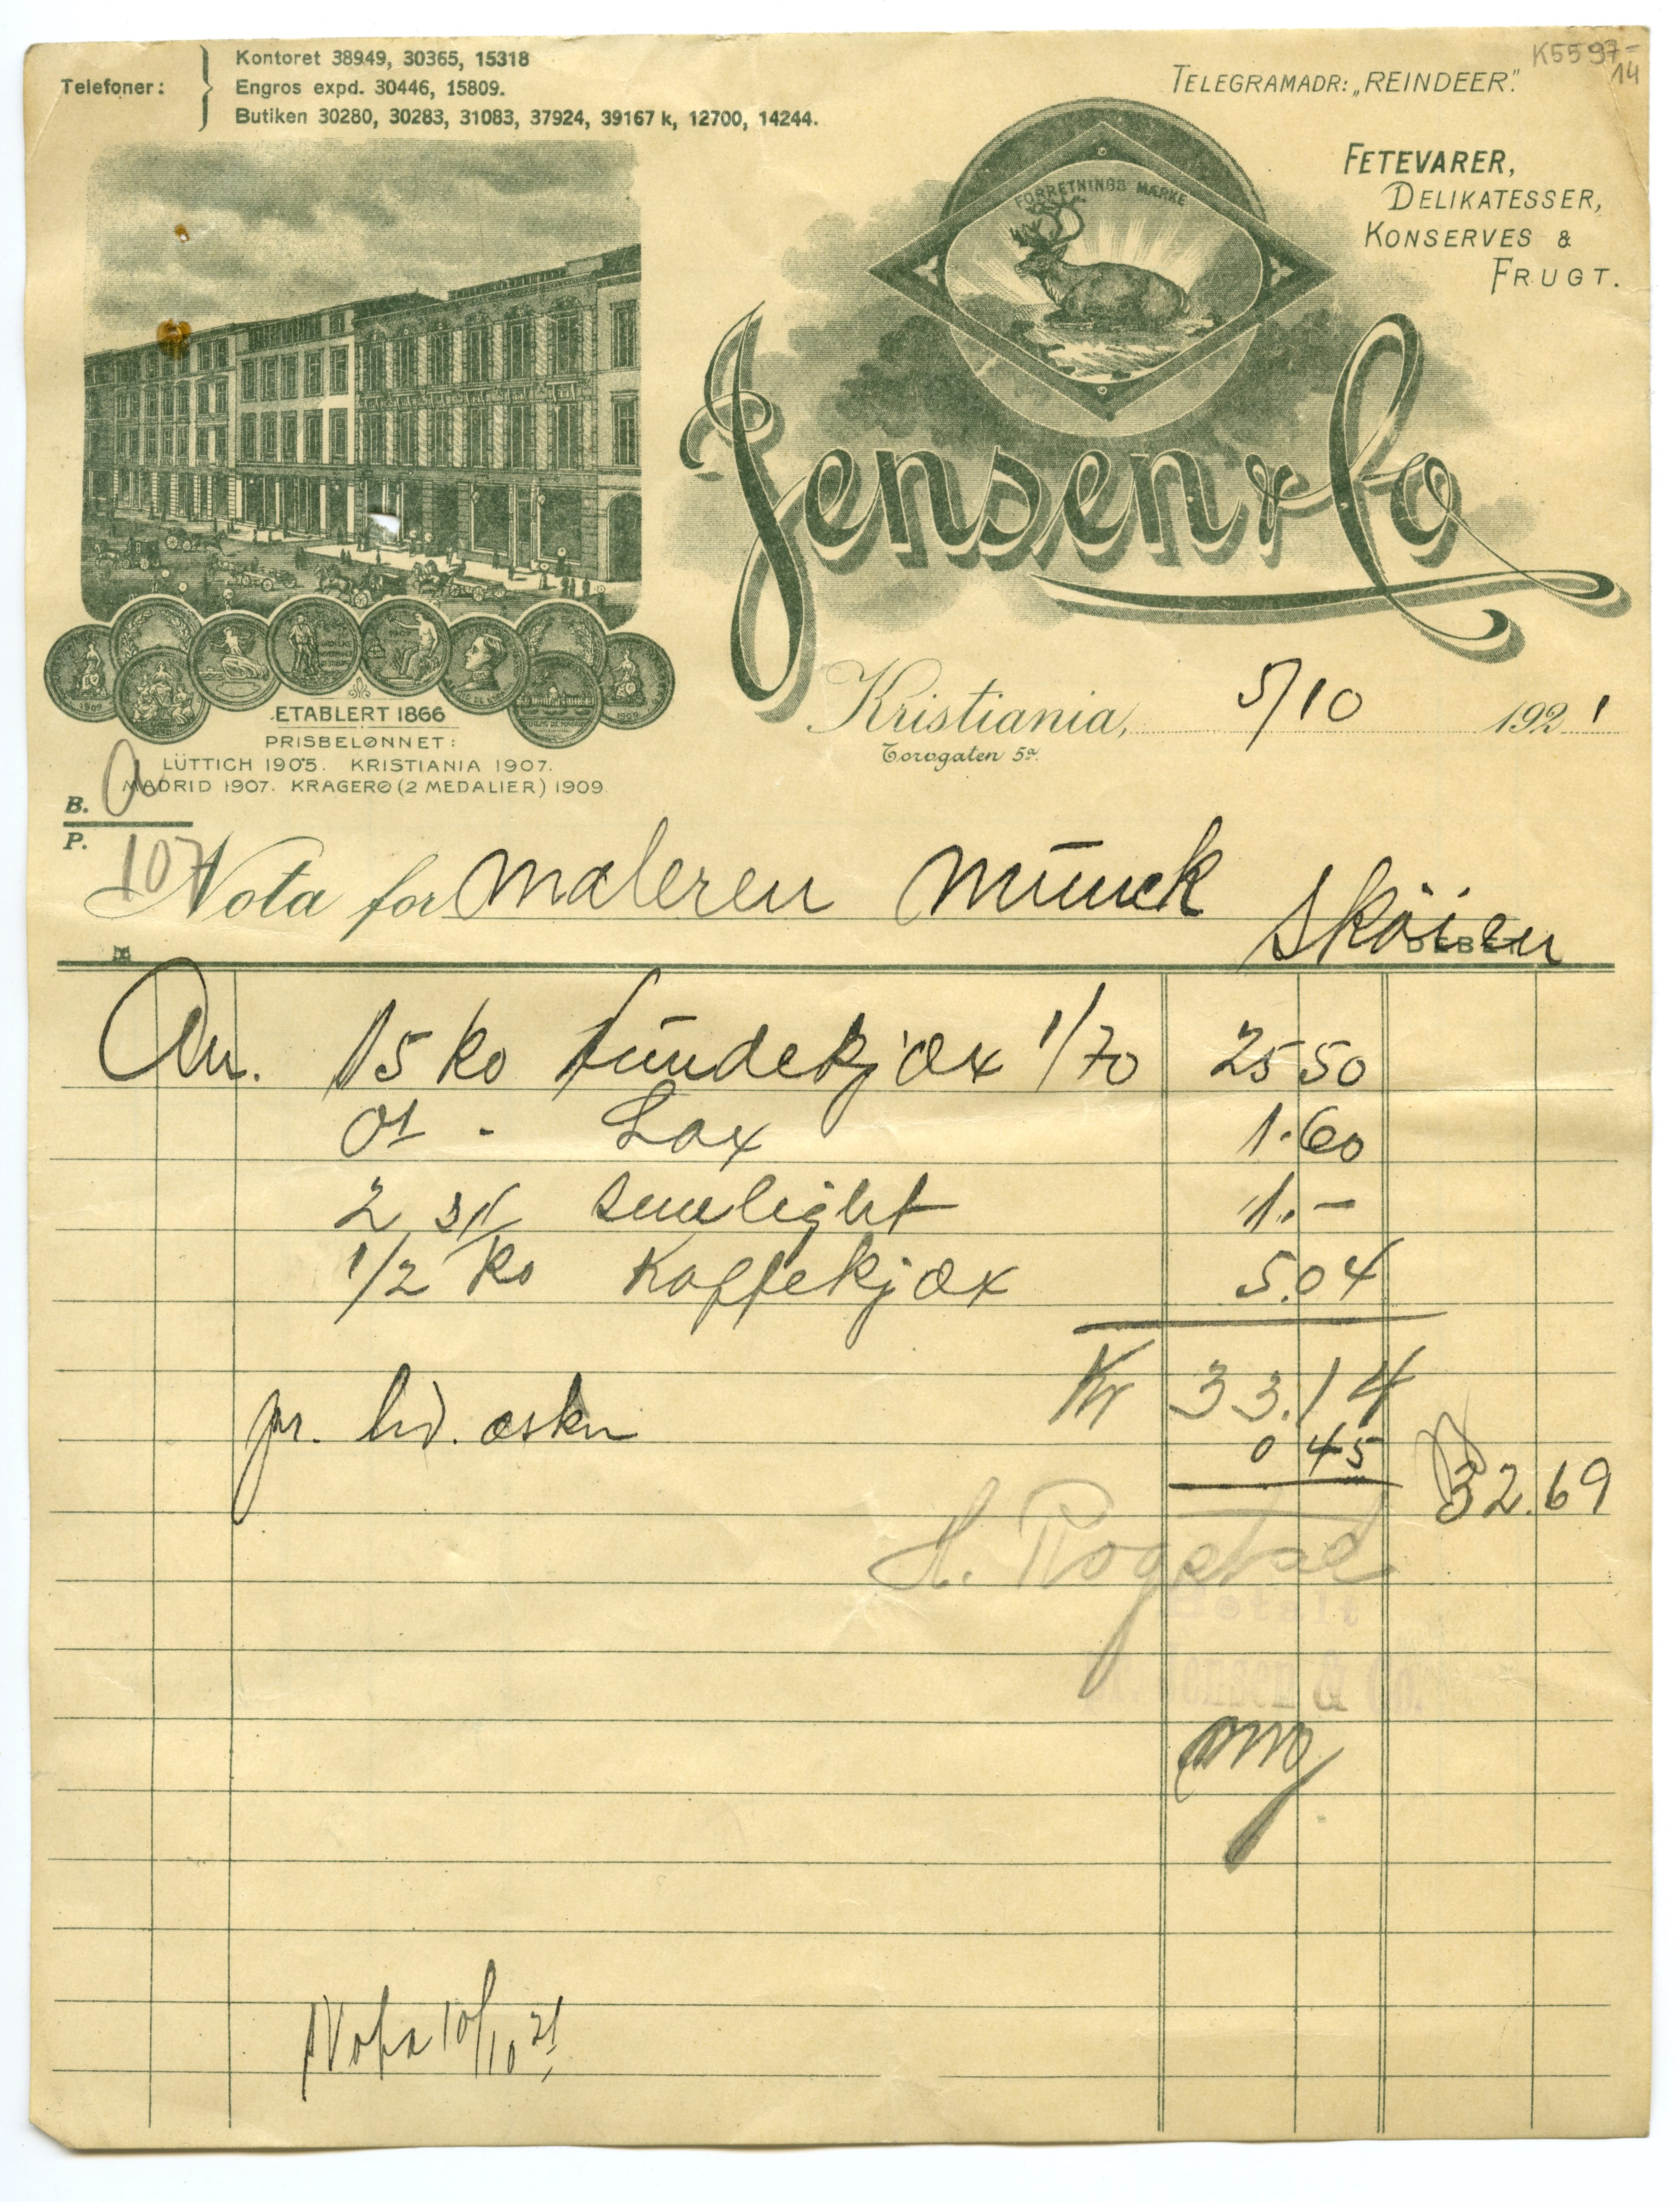 K5597-14
Telefoner:
Kontoret 38949, 30365, 15318
Engros expd. 30446, 15809.
Butiken 30280, 30283, 31083, 37924, 39167 k, 12700, 14244.
TELEGRAMADR: „REINDEER”.
FETEVARER,
DELIKATESSER,
KONSERVES &
FRUGT.
FORRETNINGS MÆRKE
Jensen & Co
ETABLERT 1866
PRISBELØNNET:
LÜTTICH 1905. KRISTIANIA 1907.
MADRID 1907. KRAGERØ (2 MEDALIER) 1909
Kristiania, 5/10 1921
Torvgaten 5a.
B.
P. 107
Nota for maleren Munck Sköien
DEBET
An. 15 ko hundekjæx 1/70 25 50
01 - Lax 1.60
2 st sunlight 1.-
1/2 ko Kaffekjæx 5.04
Kr 33.14
pr. hvd. æsker 0 45
32.69
H. Rogstad
Betalt
Jensen & Co.
Nota 10/10 21